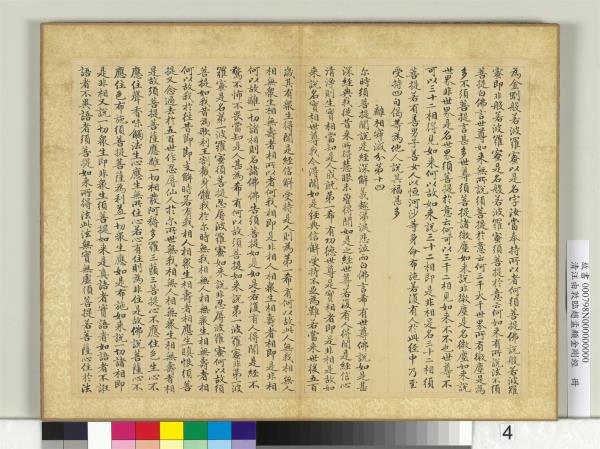 為金剛般若波羅蜜以是名字汝當奉持所以者何須菩提佛說般若波羅
蜜即非般若波羅蜜是名般若波羅蜜須菩提於意云何如來有所說法不須
菩提白佛言世尊如來無所說須菩提於意云何三千大千世界所有微塵是為
多不須菩提言甚多世尊須菩提諸微塵如來說非微塵是名微塵如來說
世界非世界是名世界須菩提於意云何可以三十二相見如來不不也世尊不
可以三十二相得見如來何以故如來說三十二相即是非相是名三十二相須
菩提若有善男子善女人以恒河沙等身命布施若復有人於此經中乃至
受持四句偈等為他人說其福甚多
離相寂滅分第十四
尒時須菩提聞說是經深解義趣涕淚悲泣而白佛言希有世尊佛說如是甚
深經典我從昔來所得慧眼未曾得聞如是之經世尊若復有人得聞是經信心
清淨則生實相當知是人成就第一希有功德世尊是實相者即是非相是故如
來說名實相世尊我今得聞如是經典信解受持不足為難若當來世後五百
歲其有衆生得聞是經信解受持是人則為第一希有何以故此人無我相無人
相無衆生相無壽者相所以者何我相即是非相人相衆生相壽者相即是非相
何以故離一切諸相則名諸佛佛告須菩提如是如是若復有人得聞是經不
驚不怖不畏當知是人甚為希有何以故須菩提如來說第一波羅蜜非第一波
羅蜜是名第一波羅蜜須菩提忍辱波羅蜜如來說非忍辱波羅蜜何以故須
菩提如我昔為歌利王割截身體我於尒時無我相無人相無衆生相無壽者相
何以故我於往昔節節支解時若有我相人相衆生相壽者相應生瞋恨須菩
提又念過去於五百世作忍辱仙人於尒所世無我相無人相無衆生相無壽者相
是故須菩提菩薩應離一切相發阿耨多羅三藐三菩提心不應住色生心不
應住聲香味觸法生心應生無所住心若心有住則為非住是故佛說菩薩心不
應住色布施須菩提菩薩為利益一切衆生應如是布施如來說一切諸相即
是非相又說一切衆生即非衆生須菩提如來是真語者實語者如語者不誑
語者不異語者須菩提如來所得法此法無實無虛須菩提若菩薩心住於法
故書 000798N000000000
清汪由敦臨趙孟頫金剛經 冊
4